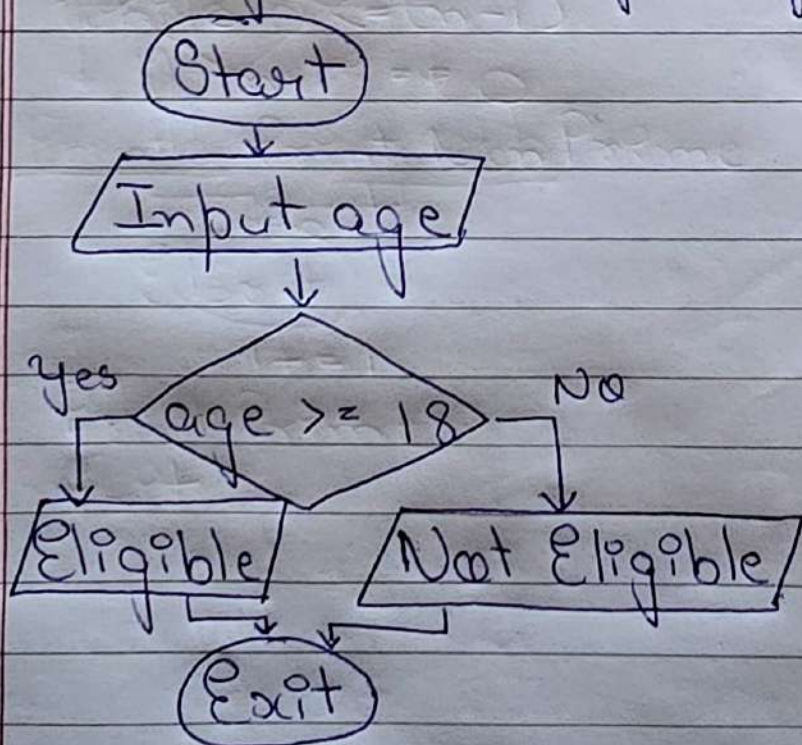 Start
Input age
Yes
No
age >= 18
Eligible
Not Eligible
Exit